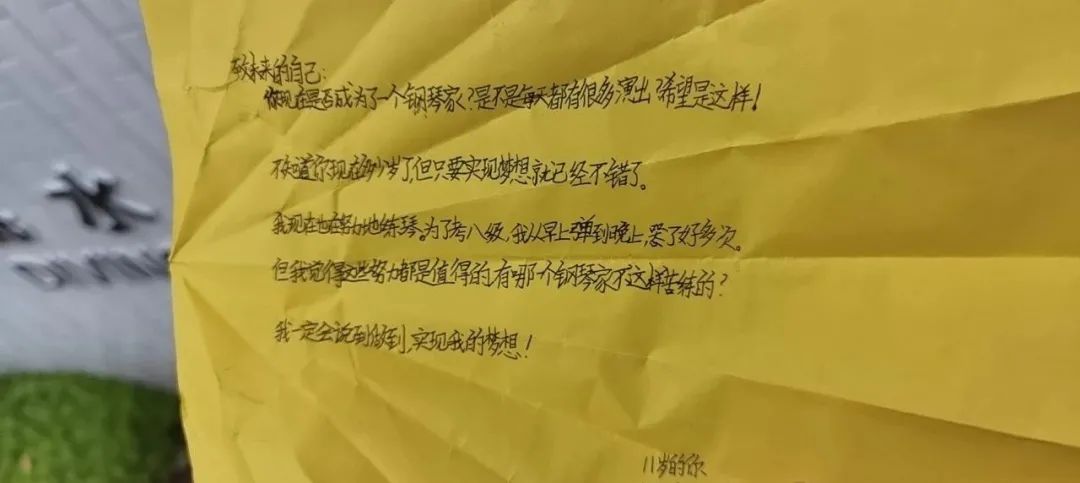 致未来的自己:
你现在是否成为了一个钢琴家?是不是每天都有很多演出?希望是这样!
不知道你现在多少岁了,但只要实现梦想就已经不错了。
我现在也在努力地练琴。为了考八级,我从早上弹到晚上,哭了好多次。
但我觉得这些努力都是值得的,有哪个钢琴家不这样苦练的?
我一定会说到做到,实现我的梦想!
11岁的你
水
DIVING